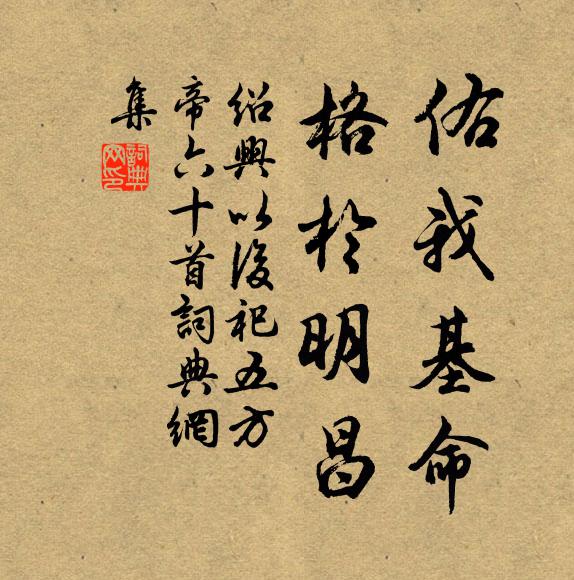 佑我基命
格於明昌
紹興以後祀五方
帝六十首詞典網
集
詞典网印